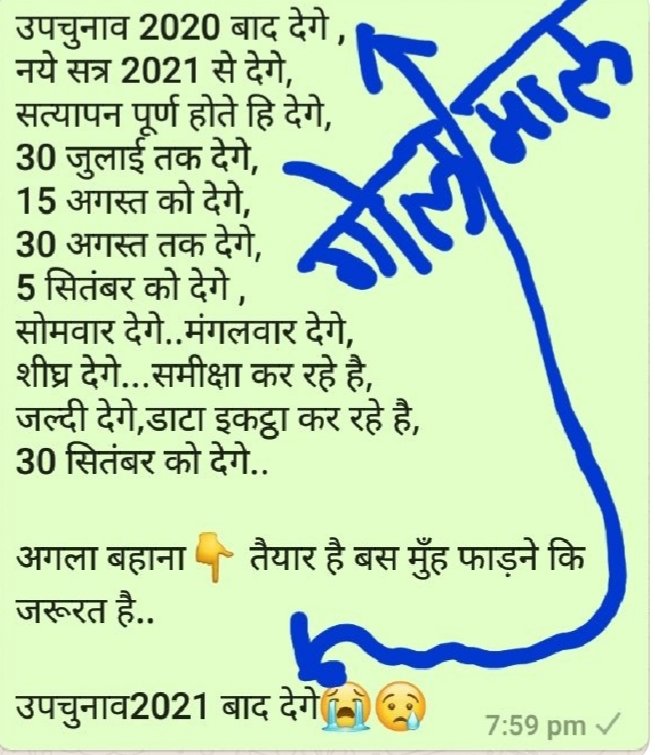 उपचुनाव 2020 बाद देगे ,
नये सत्र 2021 से देगे,
सत्यापन पूर्ण होते हि देगे,
30 जुलाई तक देगे,
15 अगस्त को देगे,
30 अगस्त तक देगे,
5 सितंबर को देगे ,
सोमवार देगे..मंगलवार देगे,
शीघ्र देगे...समीक्षा कर रहे है,
जल्दी देगे,डाटा इकट्ठा कर रहे है,
30 सितंबर को देगे..
गोल माल
अगला बहाना👇 तैयार है बस मुँह फाड़ने कि
जरूरत है..
उपचुनाव2021 बाद देगे😭😢
7:59 pm ✓